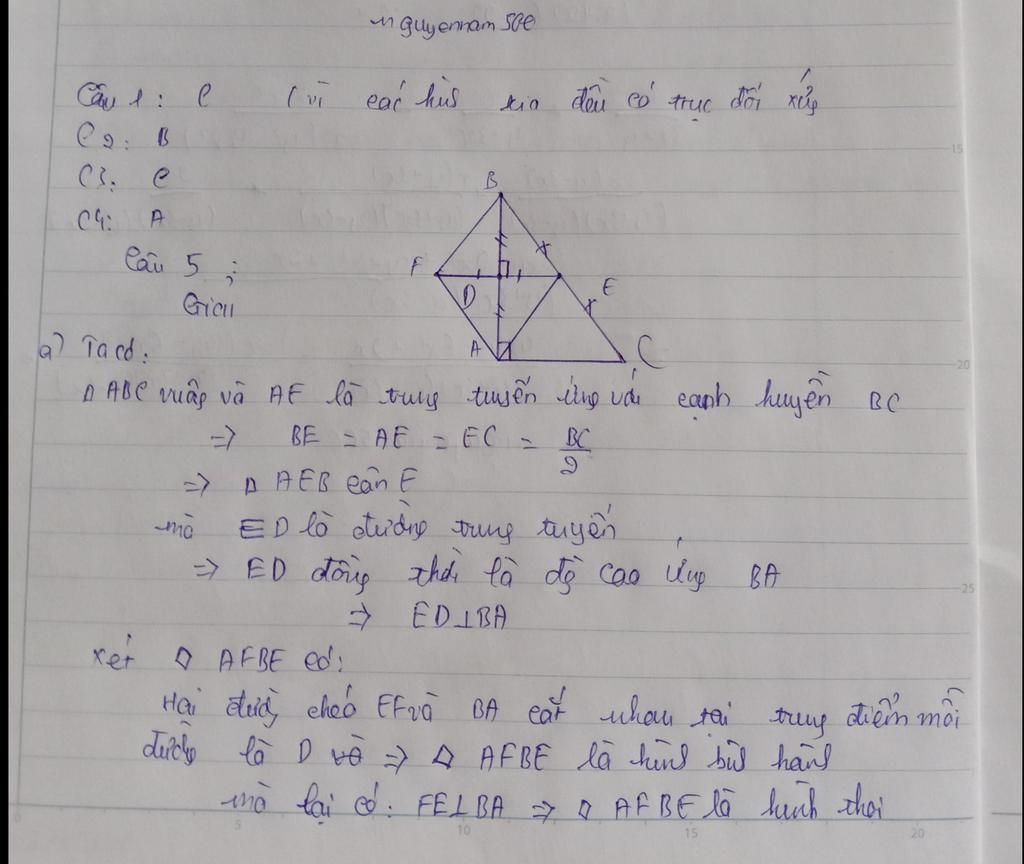 nguyennam 50e
Câu 1: C (vì các hình trên đều có trục đối xứng
C2: B
C3: C
C4: A
Câu 5 ;
Giải
B
F
D
E
A
C
a) Ta có:
Δ ABC vuông và AE là trung tuyến ứng với cạnh huyền BC
=> BE = AE = EC = BC/2
=> Δ AEB cân E
mà ED là đường trung tuyến
=> ED đồng thời là đg cao ứng BA
=> ED⊥BA
xét ◊ AFBE có:
Hai đường chéo EF và BA cắt nhau tại trung điểm mỗi
đường là D và => ◊ AFBE là hình bình hành
mà lại có: FE⊥BA => ◊ AFBE là hình thoi